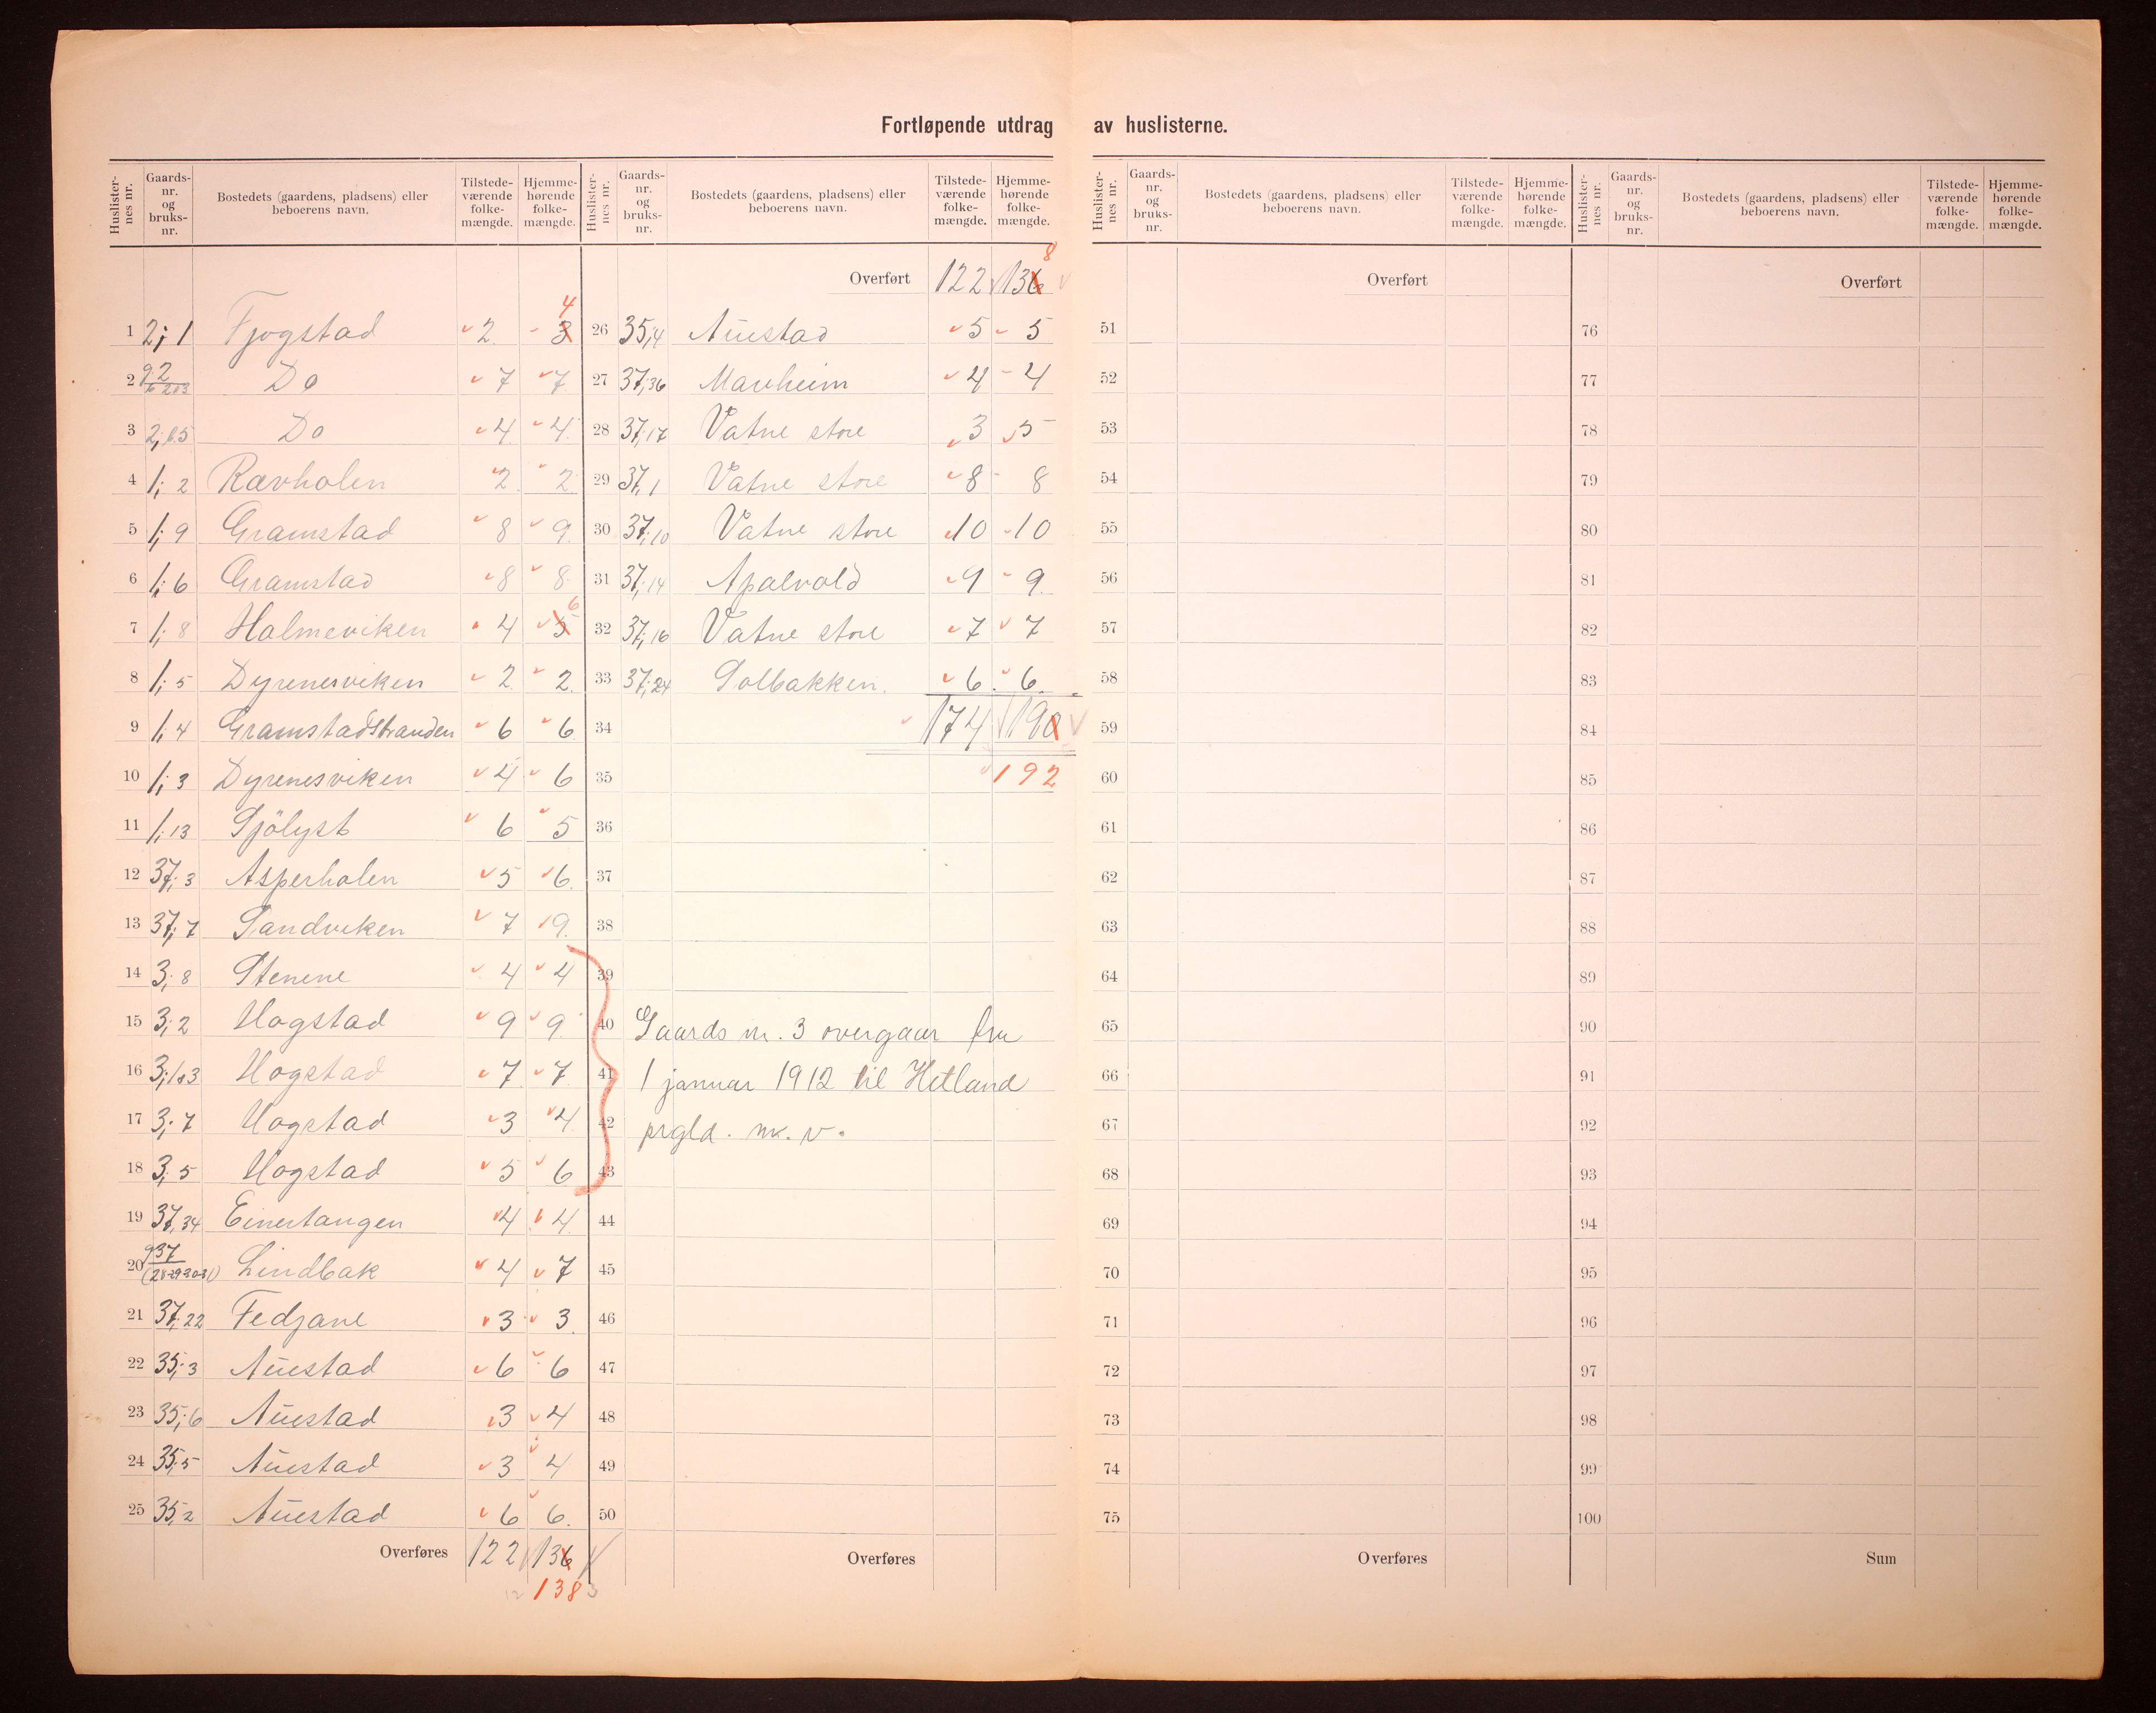 Fortløpende utdrag av huslisterne.
Huslister-nes nr. Gaards-nr. og bruks-nr. Bostedets (gaardens, pladsens) eller beboerens navn. Tilstede-værende folke-mængde. Hjemme-hørende folke-mængde.
1 2;1 Fjogstad 2 3 4
2 g.2 b 2o3 Do 7 7
3 2; b.5 Do 4 4
4 1; 2 Rævholen 2 2
5 1; 9 Gramstad 8 9
6 1; 6 Gramstad 8 8
7 1; 8 Holmeviken 4 5 6
8 1; 5 Dyrenesviken 2 2
9 1; 4 Gramstadstranden 6 6
10 1; 3 Dyrenesviken 4 6
11 1; 13 Sjölyst 6 5
12 37; 3 Asperholen 5 6
13 37; 7 Sandviken 7 9
14 3; 8 Stenene 4 4
15 3; 2 Hogstad 9 9
16 3; 1o3 Hogstad 7 7
17 3; 7 Hogstad 3 4
18 3; 5 Hogstad 5 6
19 37, 34 Einertangen 4 4
20 g 37 (28-29-30-31) Lindbak 4 7
21 37; 22 Fedjane 3 3
22 35; 3 Auestad 6 6
23 35; 6 Auestad 3 4
24 35; 5 Auestad 3 4
25 35; 2 Auestad 6 6
Overføres 122 136
138
Huslister-nes nr. Gaards-nr. og bruks-nr. Bostedets (gaardens, pladsens) eller beboerens navn. Tilstede-værende folke-mængde. Hjemme-hørende folke-mængde.
Overført 122 136 8
26 35;4 Auestad 5 5
27 37;36 Mavheim 4 4
28 37;17 Vatne store 3 5
29 37,1 Vatne store 8 8
30 37;10 Vatne store 10 10
31 37;14 Apalvold 9 9
32 37;16 Vatne store 7 7
33 37;24 Solbakken. 6 6
34 174 190
35 192
36
37
38
39
40 Gaards nr. 3 overgaar fra
41 1 januar 1912 til Hetland
42 prgld. nk. v.
43
44
45
46
47
48
49
50
Overføres
Huslister-nes nr. Gaards-nr. og bruks-nr. Bostedets (gaardens, pladsens) eller beboerens navn. Tilstede-værende folke-mængde. Hjemme-hørende folke-mængde.
Overført
51
52
53
54
55
56
57
58
59
60
61
62
63
64
65
66
67
68
69
70
71
72
73
74
75
Overføres
Huslister-nes nr. Gaards-nr. og bruks-nr. Bostedets (gaardens, pladsens) eller beboerens navn. Tilstede-værende folke-mængde. Hjemme-hørende folke-mængde.
Overført
76
77
78
79
80
81
82
83
84
85
86
87
88
89
90
91
92
93
94
95
96
97
98
99
100
Sum